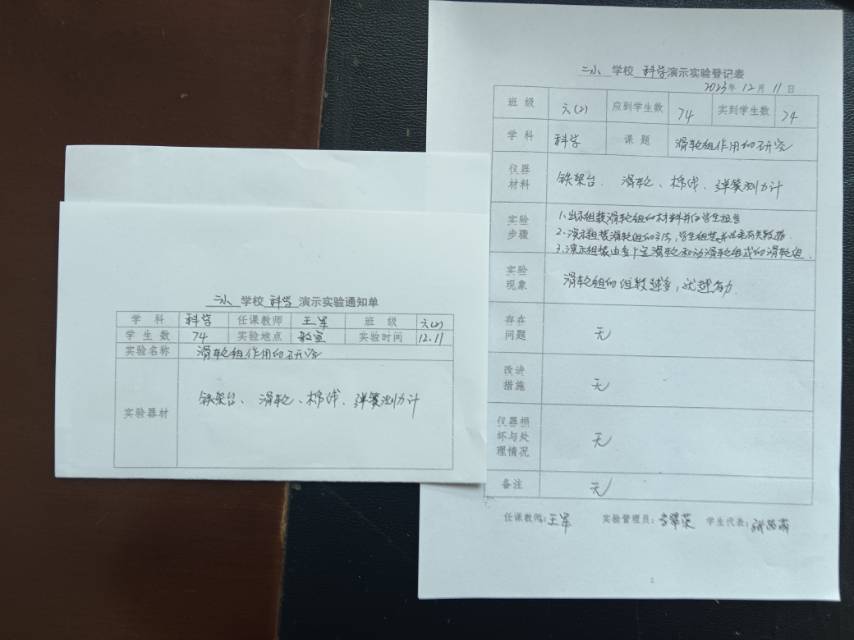 二小 学校 科学 演示实验通知单
学科 科学 任课教师 王军 班级 六(2)
学生数 74 实验地点 教室 实验时间 12.11
实验名称 滑轮组作用的研究
实验器材 铁架台、滑轮、棉线、弹簧测力计
二小 学校 科学 演示实验登记表
2023年12月11日
班级 六(2) 应到学生数 74 实到学生数 74
学科 科学 课题 滑轮组作用的研究
仪器材料 铁架台、滑轮、棉线、弹簧测力计
实验步骤 1.出示组装滑轮组的材料并向学生组
2.演示组装滑轮组的方法,学生组装并记录有关数据
3.演示组装由多个定滑轮和动滑轮组成的滑轮组
实验现象 滑轮组的组数越多,就越省力.
存在问题 无
改进措施 无
仪器损坏与处理情况 无
备注 无
任课教师:王军 实验管理员: 学生代表: